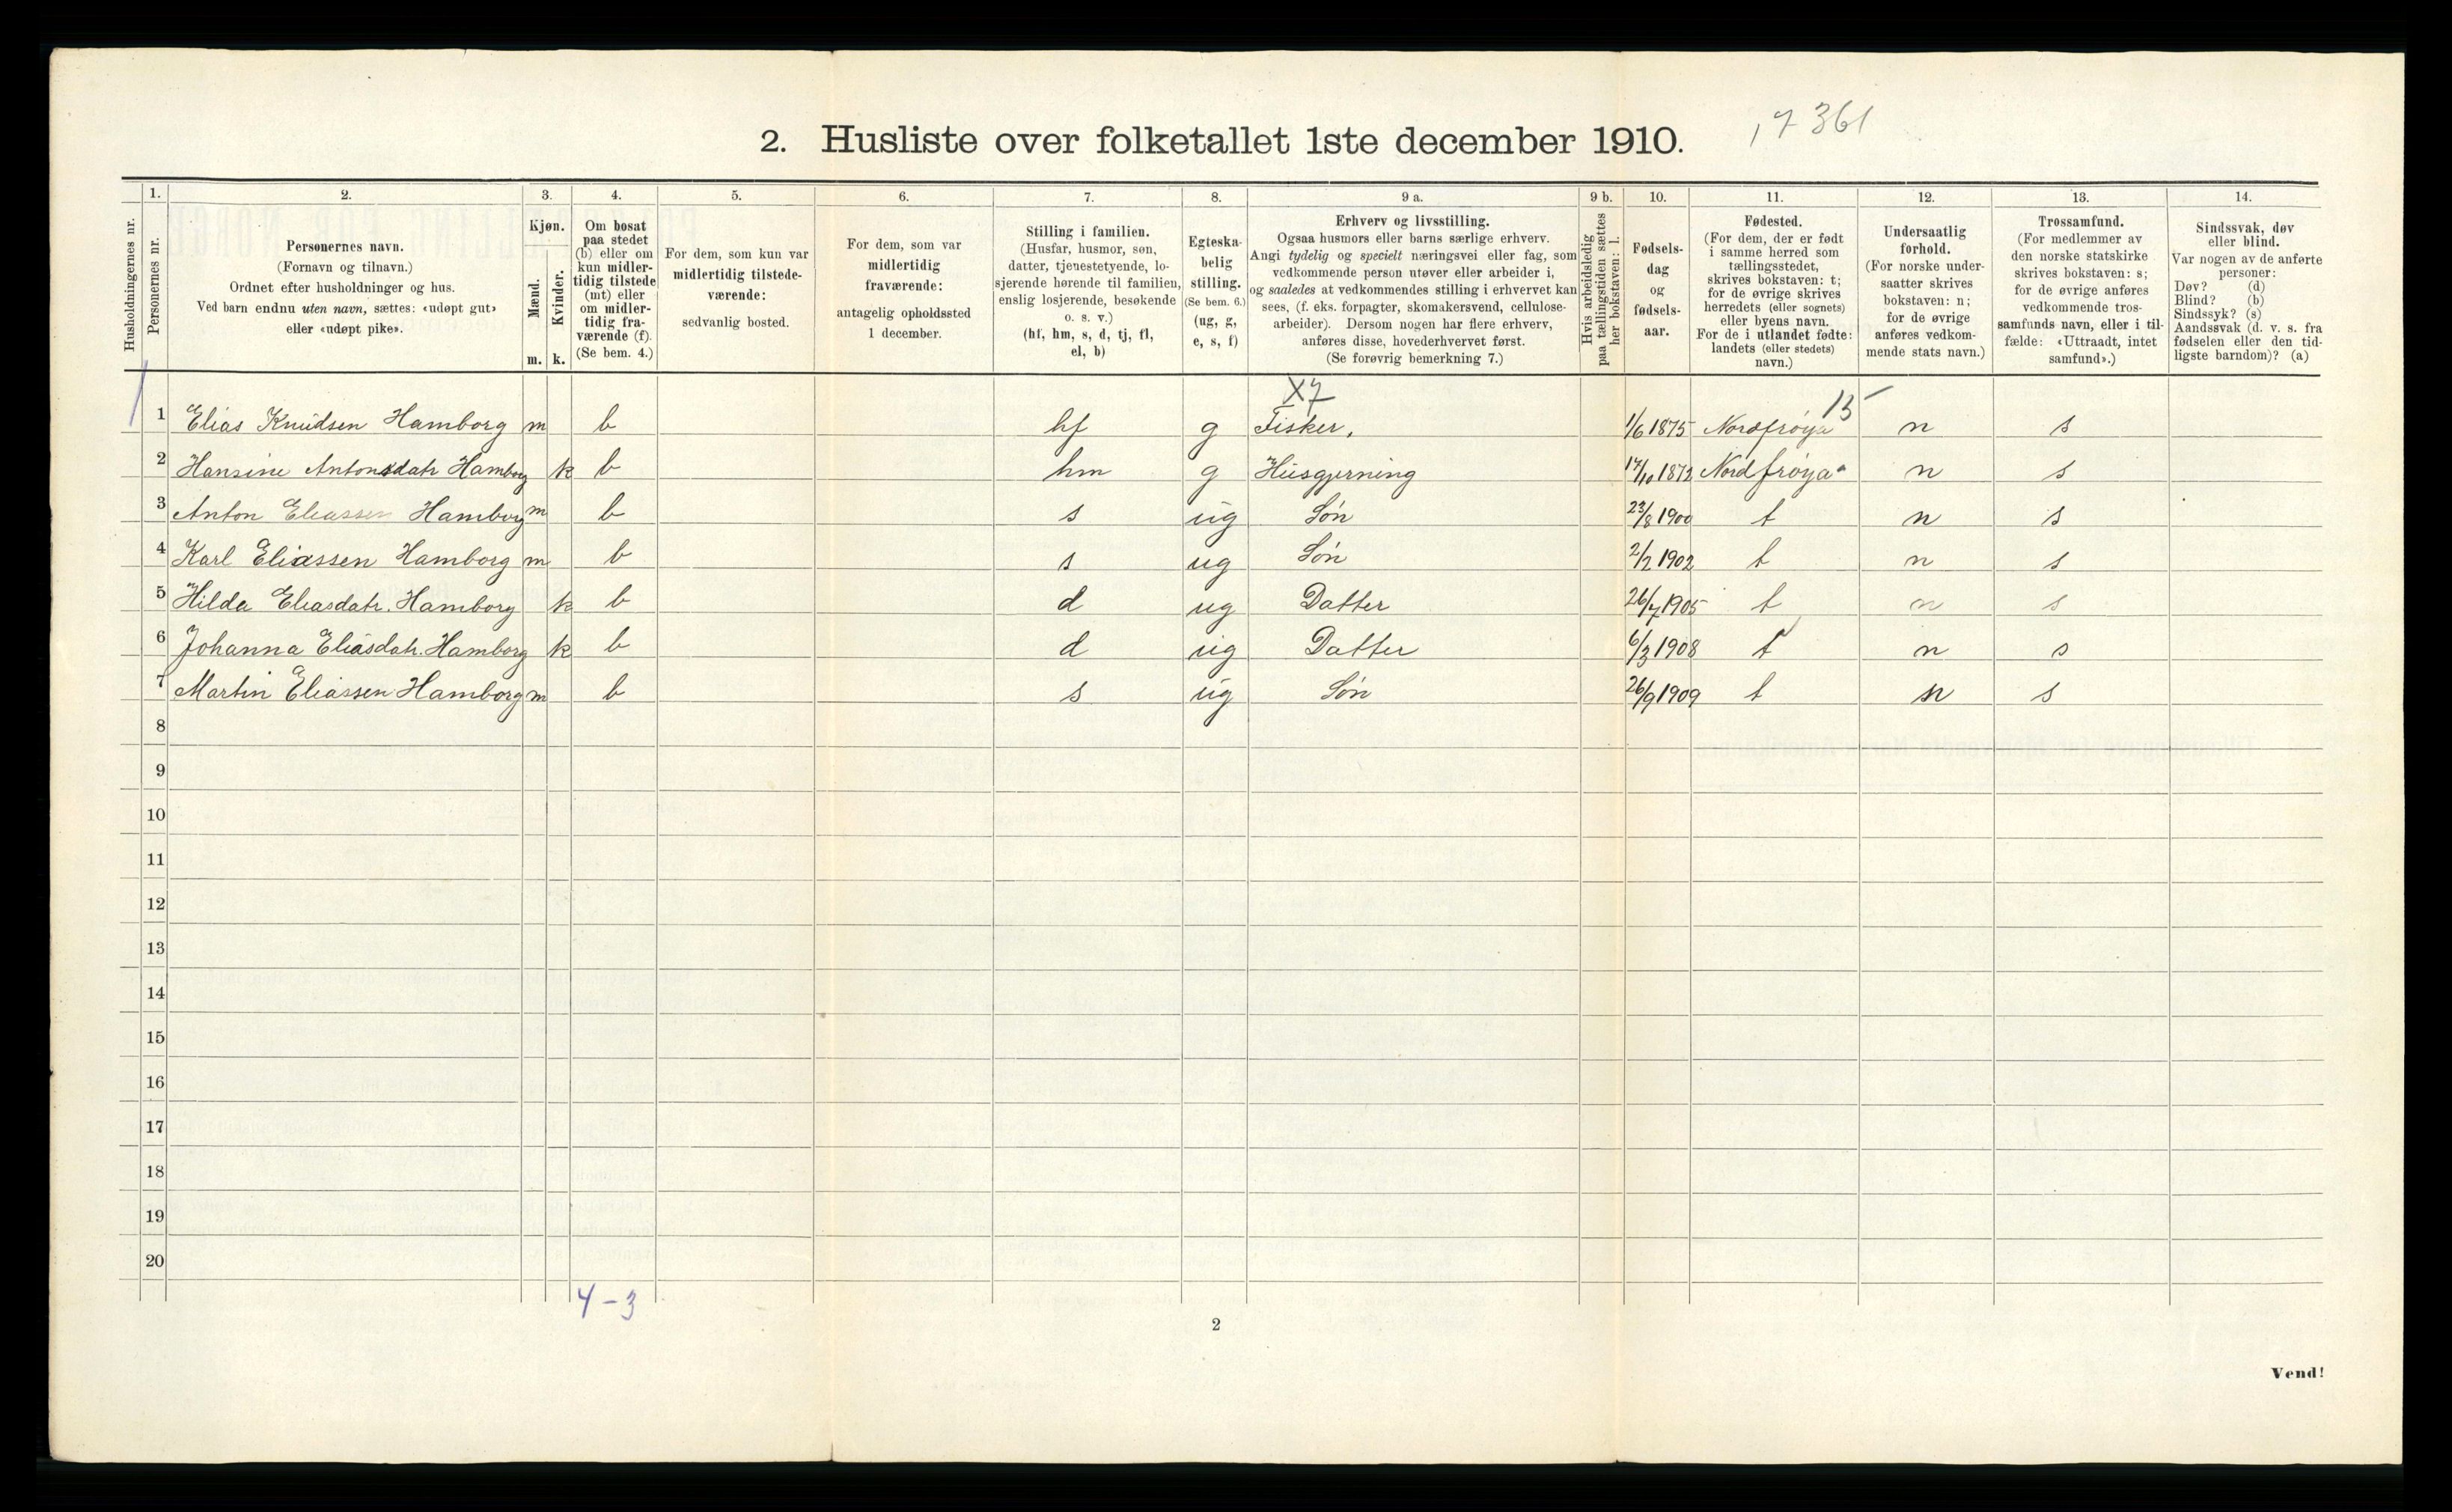 2. Husliste over folketallet 1ste december 1910.
17 361
Husholdningernes nr.
1.
Personernes nr.
2.
Personernes navn.
(Fornavn og tilnavn.)
Ordnet efter husholdninger og hus.
Ved barn endnu uten navn, sættes: «udøpt gut»
eller «udøpt pike».
3.
Kjøn.
Mænd.
Kvinder.
m. k.
4.
Om bosat
paa stedet
(b) eller om
kun midler-
tidig tilstede
(mt) eller
om midler-
tidig fra-
værende (f).
(Se bem. 4.)
5.
For dem, som kun var
midlertidig tilstede-
værende:
sedvanlig bosted.
6.
For dem, som var
midlertidig
fraværende:
antagelig opholdssted
1 december.
7.
Stilling i familien.
(Husfar, husmor, søn,
datter, tjenestetyende, lo-
sjerende hørende til familien,
enslig losjerende, besøkende
o. s. v.)
(hf, hm, s, d, tj, fl,
el, b)
8.
Egteska-
belig
stilling.
(Se bem. 6.)
(ug, g,
e, s, f)
9 a.
Erhverv og livsstilling.
Ogsaa husmors eller barns særlige erhverv.
Angi tydelig og specielt næringsvei eller fag, som
vedkommende person utøver eller arbeider i,
og saaledes at vedkommendes stilling i erhvervet kan
sees, (f. eks. forpagter, skomakersvend, cellulose-
arbeider). Dersom nogen har flere erhverv,
anføres disse, hovederhvervet først.
(Se forøvrig bemerkning 7.)
9 b.
Hvis arbeidsledig
paa tællingstiden sættes
her bokstaven: l.
10.
Fødsels-
dag
og
fødsels-
aar.
11.
Fødested.
(For dem, der er født
i samme herred som
tællingsstedet,
skrives bokstaven: t;
for de øvrige skrives
herredets (eller sognets)
eller byens navn.
For de i utlandet fødte:
landets (eller stedets)
navn.)
12.
Undersaatlig
forhold.
(For norske under-
saatter skrives
bokstaven: n;
for de øvrige
anføres vedkom-
mende stats navn.)
13.
Trossamfund.
(For medlemmer av
den norske statskirke
skrives bokstaven: s;
for de øvrige anføres
vedkommende tros-
samfunds navn, eller i til-
fælde: «Uttraadt, intet
samfund».)
14.
Sindssvak, døv
eller blind.
Var nogen av de anførte
personer:
Døv? (d)
Blind? (b)
Sindssyk? (s)
Aandssvak (d. v. s. fra
fødselen eller den tid-
ligste barndom)? (a)
X7
15
1 Elias Knudsen Hamborg m b hf g Fisker, 1/6 1875 Nordfrøya n s
2 Hansine Antonsdatr Hamborg k b hm g Husgjerning 17/10 1872 Nordfrøya n s
3 Anton Eliassen Hamborg m b s ug Søn 23/8 1900 t n s
4 Karl Eliassen Hamborg m b s ug Søn 2/2 1902 t n s
5 Hilda Eliasdatr. Hamborg k b d ug Datter 26/7 1905 t n s
6 Johanna Eliasdatr. Hamborg k b d ug Datter 6/3 1908 t n s
7 Martin Eliassen Hamborg m b s ug Søn 26/9 1909 t n s
8
9
10
11
12
13
14
15
16
17
18
19
20
4-3
2
Vend!